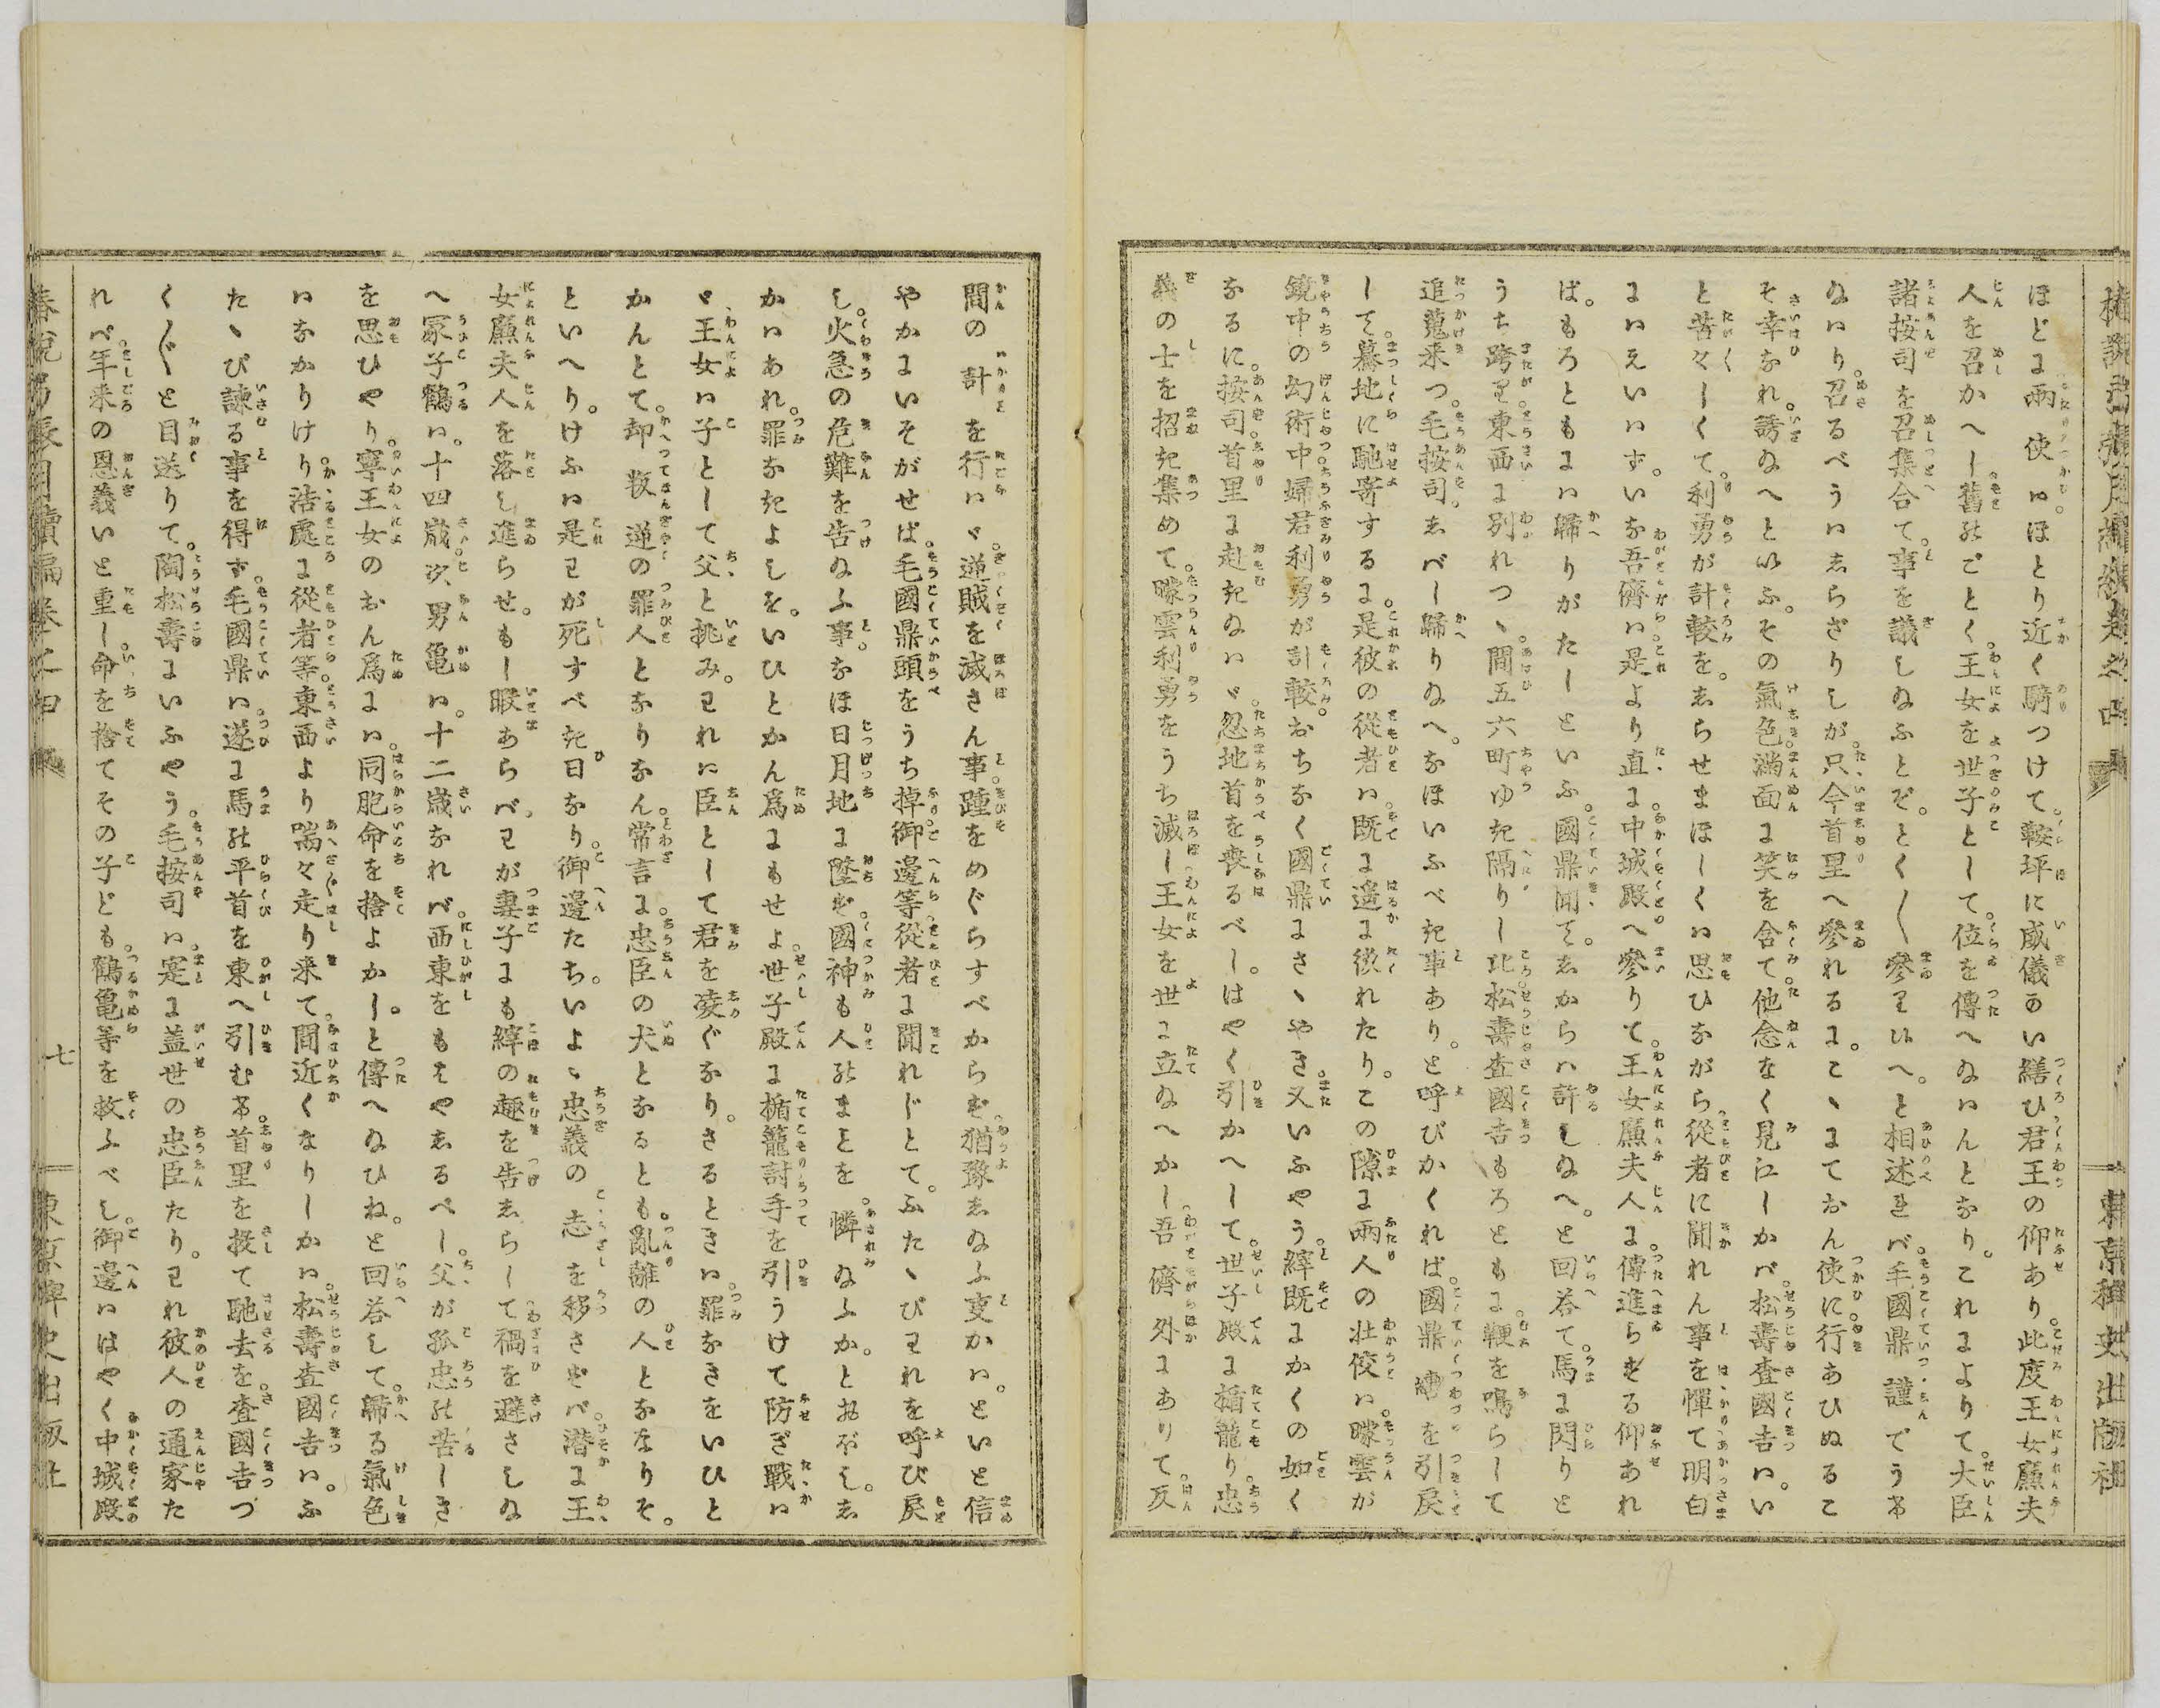 椿說弓張月續編卷之四
東京稗史出版社
ほどに兩使は。ほとり近く騎つけて。鞍坪に威儀かい繕ひ君王の仰あり。此度王女廉夫
人を召かへし。舊のごとく。王女を世子として。位を傳へ給はんとなり。これによりて。大臣
諸按司を召集合て。事を議し給ふとぞ。とく〱參り給へ。と相述れば。毛國鼎。謹でうけ
給はり。召るべうはしらざりしが。只今首里へ參れるに。こゝにておん使に。行あひぬるこ
そ幸なれ。誘給へといふ。その氣色。滿面に笑を含て。他念なく見えしかば。松壽査國吉は。い
と苦々しくて。利勇が計較を。しらせまほしくは思ひながら。從者に聞れん事を憚て。明白
にはえいはず。いな吾儕は。是より直に。中城殿へ參りて。王女廉夫人に。傳進らする仰あれ
ば。もろともには歸りがたしといふ。國鼎聞て。しからは許し給へ。と回荅て。馬に閃りと
うち跨り。東西に別れつゝ。間五六町ゆき隔りし比。松壽査國吉もろともに。鞭を鳴らして
追蒐來つ。毛按司。しばし歸り給へ。なほいふべき事あり。と呼びかくれば。國鼎轡を引戾
して。驀地に馳寄するに。是彼の從者は。既に遙に後れたり。この隙に兩人の壯佼は。曚雲が
鏡中の幻術。中婦君利勇が計較。おちなく國鼎にさゝやき。又いふやう。縡既にかくの如く
なるに。按司。首里に赴き給はゞ。忽地首を喪るべし。はやく引かへして。世子殿に楯籠り。忠
義の士を招き集めて。曚雲利勇をうち滅し。王女を世に立給へかし。吾儕外にありて。反
間の計を行はゞ。逆賊を滅さん事。踵をめぐらすべからず。猶豫し給ふ事かは。といと信
やかにいそがせば。毛國鼎頭をうち掉。御邊等。從者に聞れじとて。ふたゝびわれを呼び戾
し。火急の危難を告給ふ事。なほ日月地に墜ず。國神も人のまことを。憐給ふか。とおぼし。し
かはあれ。罪なきよしを。いひとかん爲にもせよ。世子殿に楯籠。討手を引うけて防ぎ戰は
ゞ。王女は子として父と挑み。われは臣として君を凌ぐなり。さるときは。罪なきをいひと
かんとて。却叛逆の罪人となりなん。常言に。忠臣の犬となるとも。亂離の人となりそ。
といへり。けふは是わが死すべき日なり。御邊たち。いよゝ忠義の志を移さずば。潜に王
女廉夫人を落し進らせ。もし暇あらば。わが妻子にも縡の趣を告しらして。禍を避さし給
へ。冢子鶴は。十四歲。次男亀は。十二歲なれば。西東をもをやしるべし。父が孤忠の苦しき
を思ひやり。寧王女のおん爲には。同胞命を捨よかし。と傳へ給ひね。と回荅して。歸る氣色
はなかりけり。浩處に從者等。東西より喘々走り来て。間近くなりしかば。松壽査國吉は。ふ
たゝび諌る事を得ず。毛國鼎は。遂に馬の平首を東へ引むけ。首里を投て馳去を。査國吉つ
く〲と目送りて。陶松壽にいふやう。毛按司は。寔に蓋世の忠臣たり。われ彼人の通家た
れば。年来の恩義いと重し。命を捨てその子ども。鶴亀等を救ふべし。御邊ははやく中城殿
椿說弓張月續編卷之四
七
東京稗史出版社